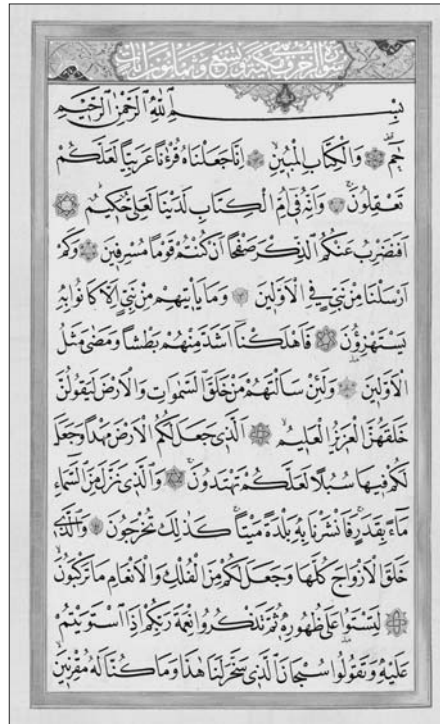 سورة الزخرف مكية وهي تسع وثمانون آيات
بِسْمِ اللّٰهِ الرَّحْمٰنِ الرَّحٖيمِ
حٰمٓ وَالْكِتَابِ الْمُبٖينِ اِنَّا جَعَلْنَاهُ قُرْءٰنًا عَرَبِيًّا لَعَلَّكُمْ
تَعْقِلُونَ وَاِنَّهُ فٖٓى اُمِّ الْكِتَابِ لَدَيْنَا لَعَلِىٌّ حَكٖيمٌ
اَفَنَضْرِبُ عَنْكُمُ الذِّكْرَ صَفْحًا اَنْ كُنْتُمْ قَوْمًا مُسْرِفٖينَ وَكَمْ
اَرْسَلْنَا مِنْ نَبِىٍّ فِى الْاَوَّلٖينَ وَمَا يَاْتٖيهِمْ مِنْ نَبِىٍّ اِلَّا كَانُوا بِهٖ
يَسْتَهْزِؤُنَ فَاَهْلَكْنَٓا اَشَدَّ مِنْهُمْ بَطْشًا وَمَضٰى مَثَلُ
الْاَوَّلٖينَ وَلَئِنْ سَاَلْتَهُمْ مَنْ خَلَقَ السَّمٰوَاتِ وَالْاَرْضَ لَيَقُولُنَّ
خَلَقَهُنَّ الْعَزٖيزُ الْعَلٖيمُ اَلَّذٖى جَعَلَ لَكُمُ الْاَرْضَ مَهْدًا وَجَعَلَ
لَكُمْ فٖيهَا سُبُلًا لَعَلَّكُمْ تَهْتَدُونَ وَالَّذٖى نَزَّلَ مِنَ السَّمَٓاءِ
مَٓاءً بِقَدَرٍ فَاَنْشَرْنَا بِهٖ بَلْدَةً مَيْتًا كَذٰلِكَ تُخْرَجُونَ وَالَّذٖى
خَلَقَ الْاَزْوَاجَ كُلَّهَا وَجَعَلَ لَكُمْ مِنَ الْفُلْكِ وَالْاَنْعَامِ مَا تَرْكَبُونَ
لِتَسْتَوُا عَلٰى ظُهُورِهٖ ثُمَّ تَذْكُرُوا نِعْمَةَ رَبِّكُمْ اِذَا اسْتَوَيْتُمْ
عَلَيْهِ وَتَقُولُوا سُبْحَانَ الَّذٖى سَخَّرَ لَنَا هٰذَا وَمَا كُنَّا لَهُ مُقْرِنٖينَ